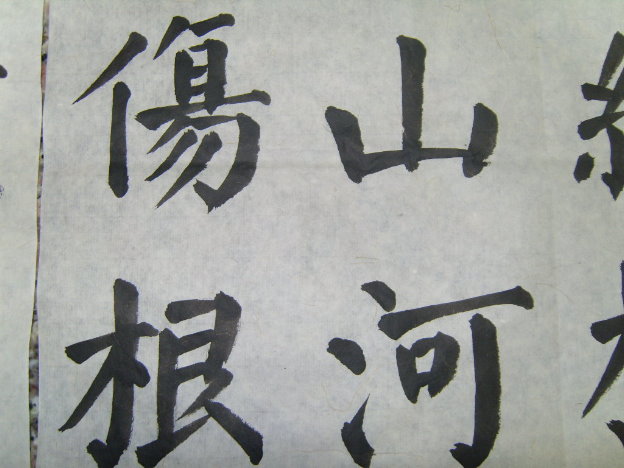 山河
傷根